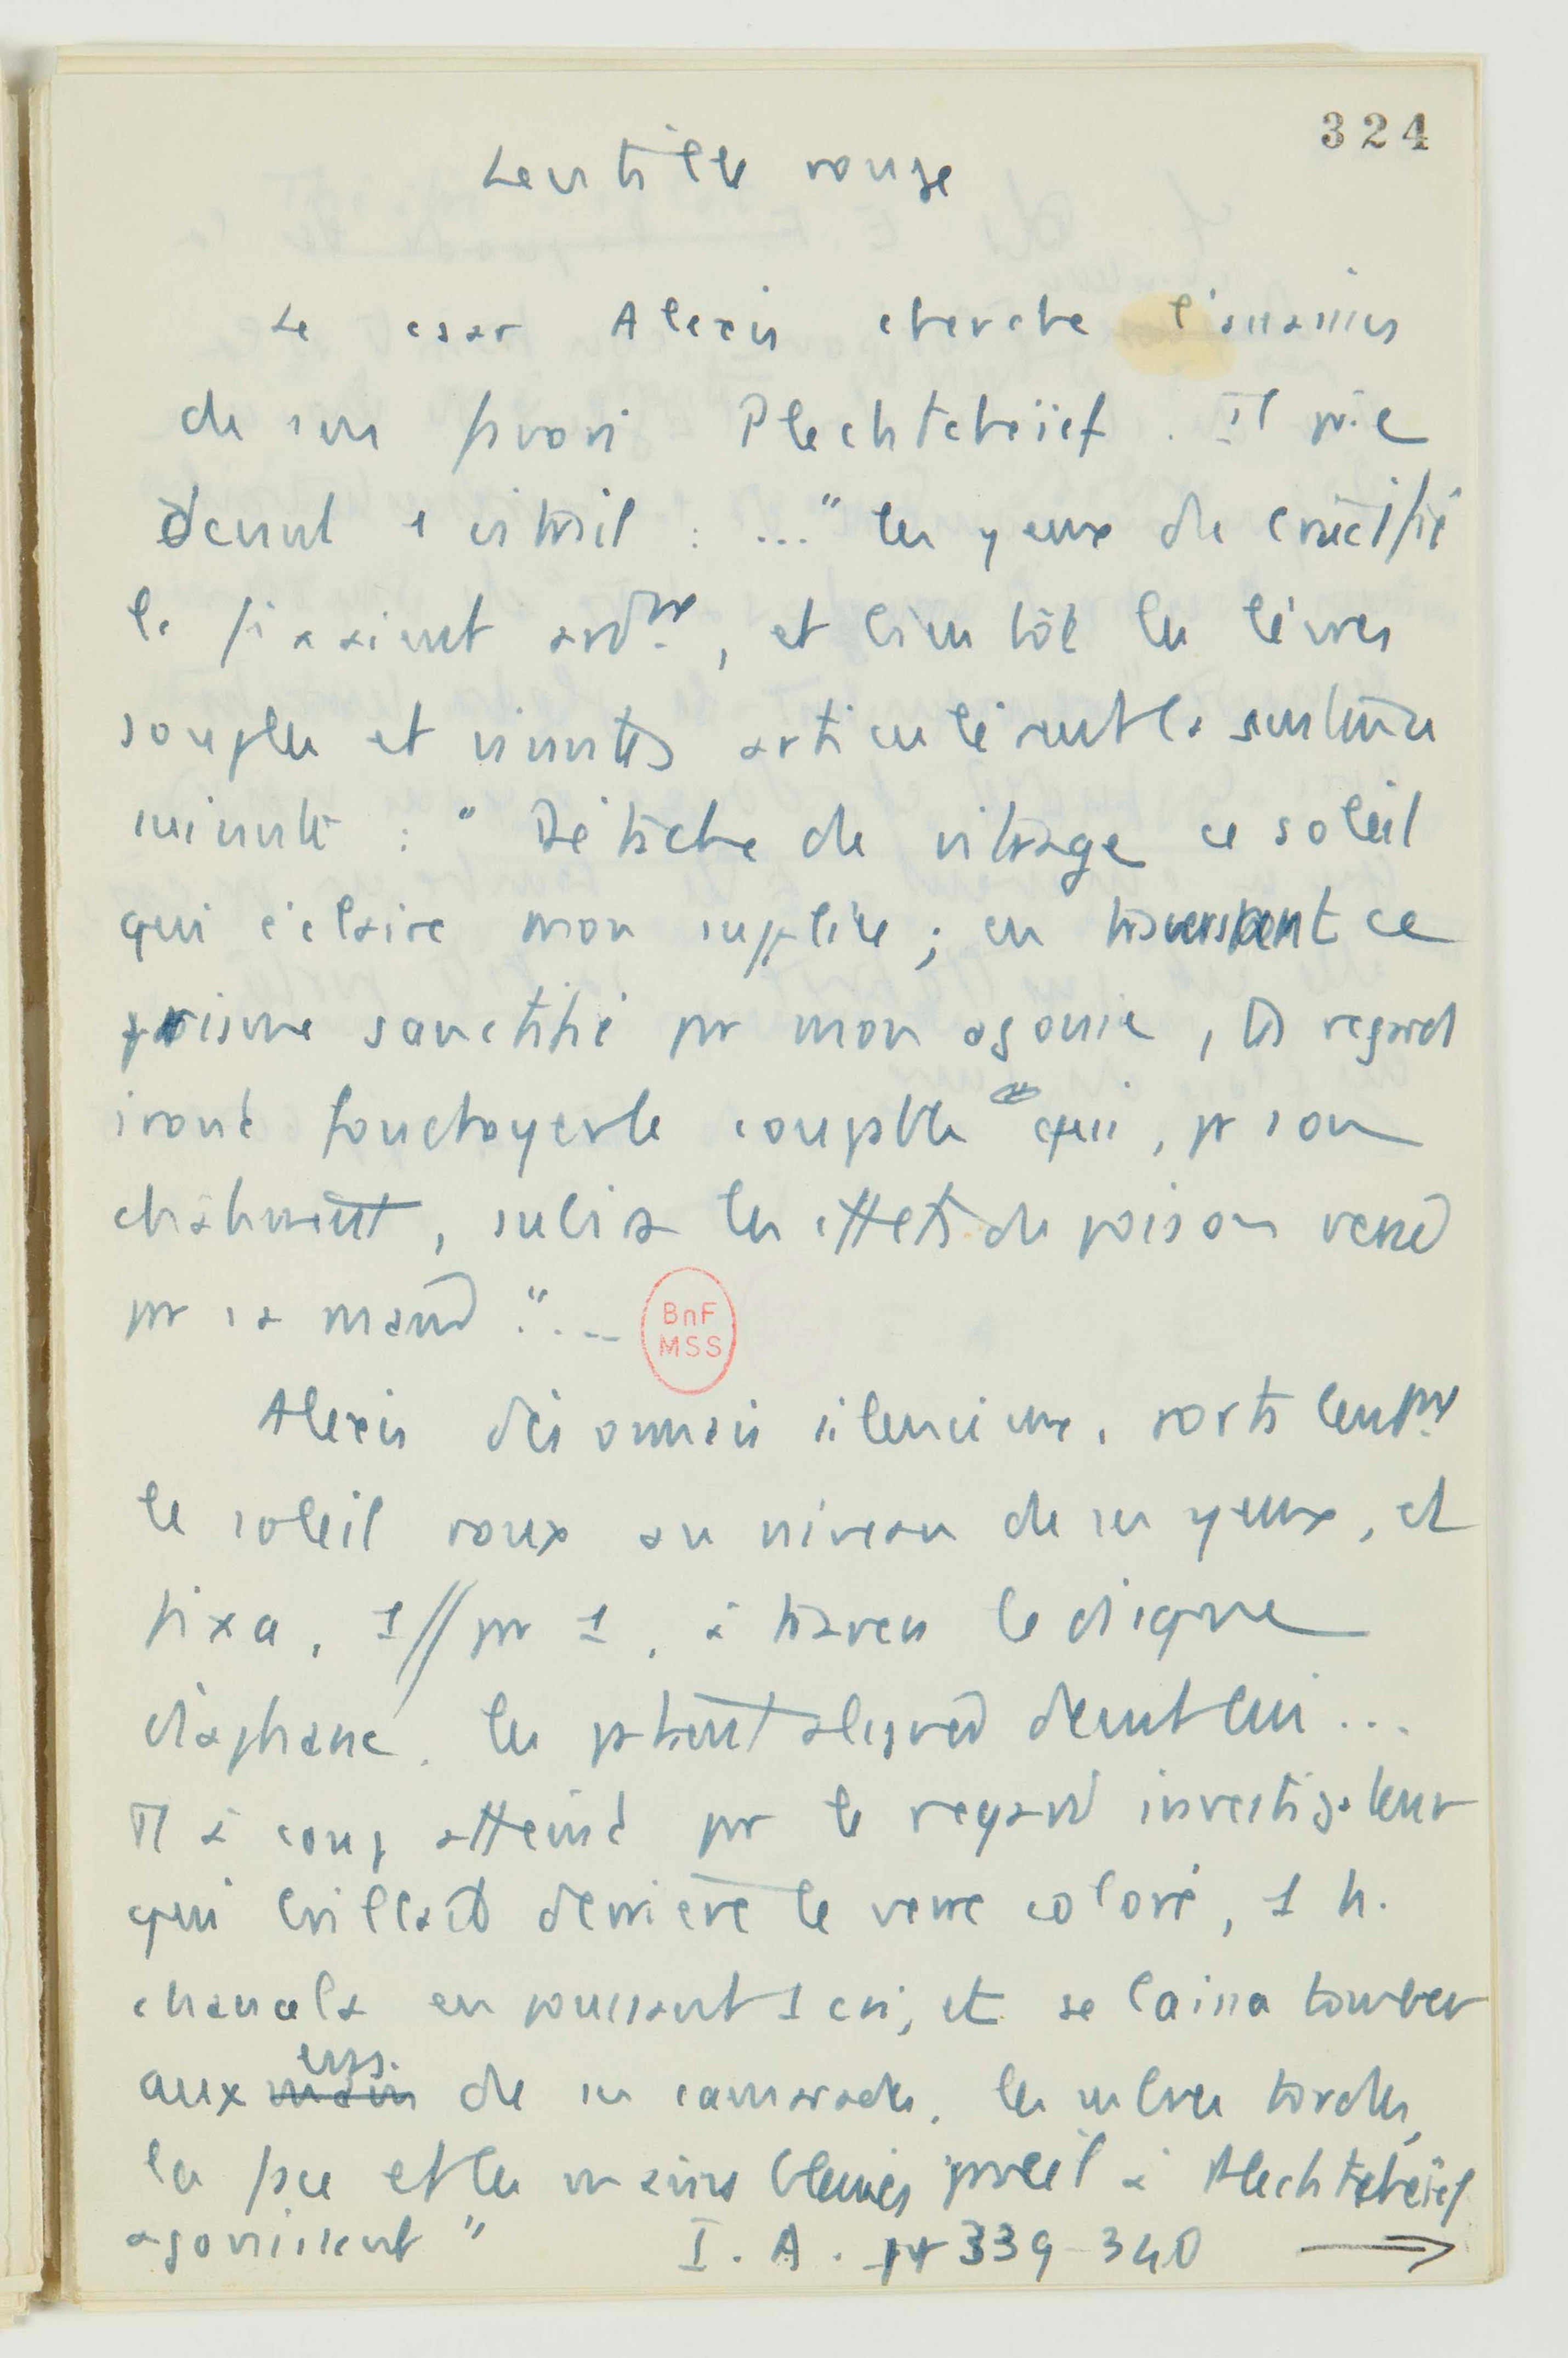 324
Lentille rouge
Le csar Alexis cherche l'assassin
de son favori Plechtcheïef. Il prie
devant 1 vitrail : ... " les yeux du crucifié
le fixaient ardmt, et bientôt les lèvres
souples et vivantes articulèrent la sentence
suivante : " Détache du vitrage ce soleil
qui éclaire mon supplice ; en traversant ce
prisme sanctifié pr mon agonie, tes regards
iront foudroyer le coupable qui, pr son
châtiment, subira les effets du poison versé
pr sa main " ...
BnF
MSS
Alexis désormais silencieux, porta lentmt
le soleil roux au niveau de ses yeux, et
fixa, 1 // pr 1, à travers le disque
diaphane, les patients alignés devant lui ...
Tt à coup atteint pr le regard investigateur
qui brillait derrière le verre coloré, 1 h.
chancela en poussant 1 cri, et se laissa tomber
aux mains de ses camarades, les membres tordus,
la face et les mains bleuies, pareil à Plechtcheïef
agonisant " I. A. pp 339-340 →